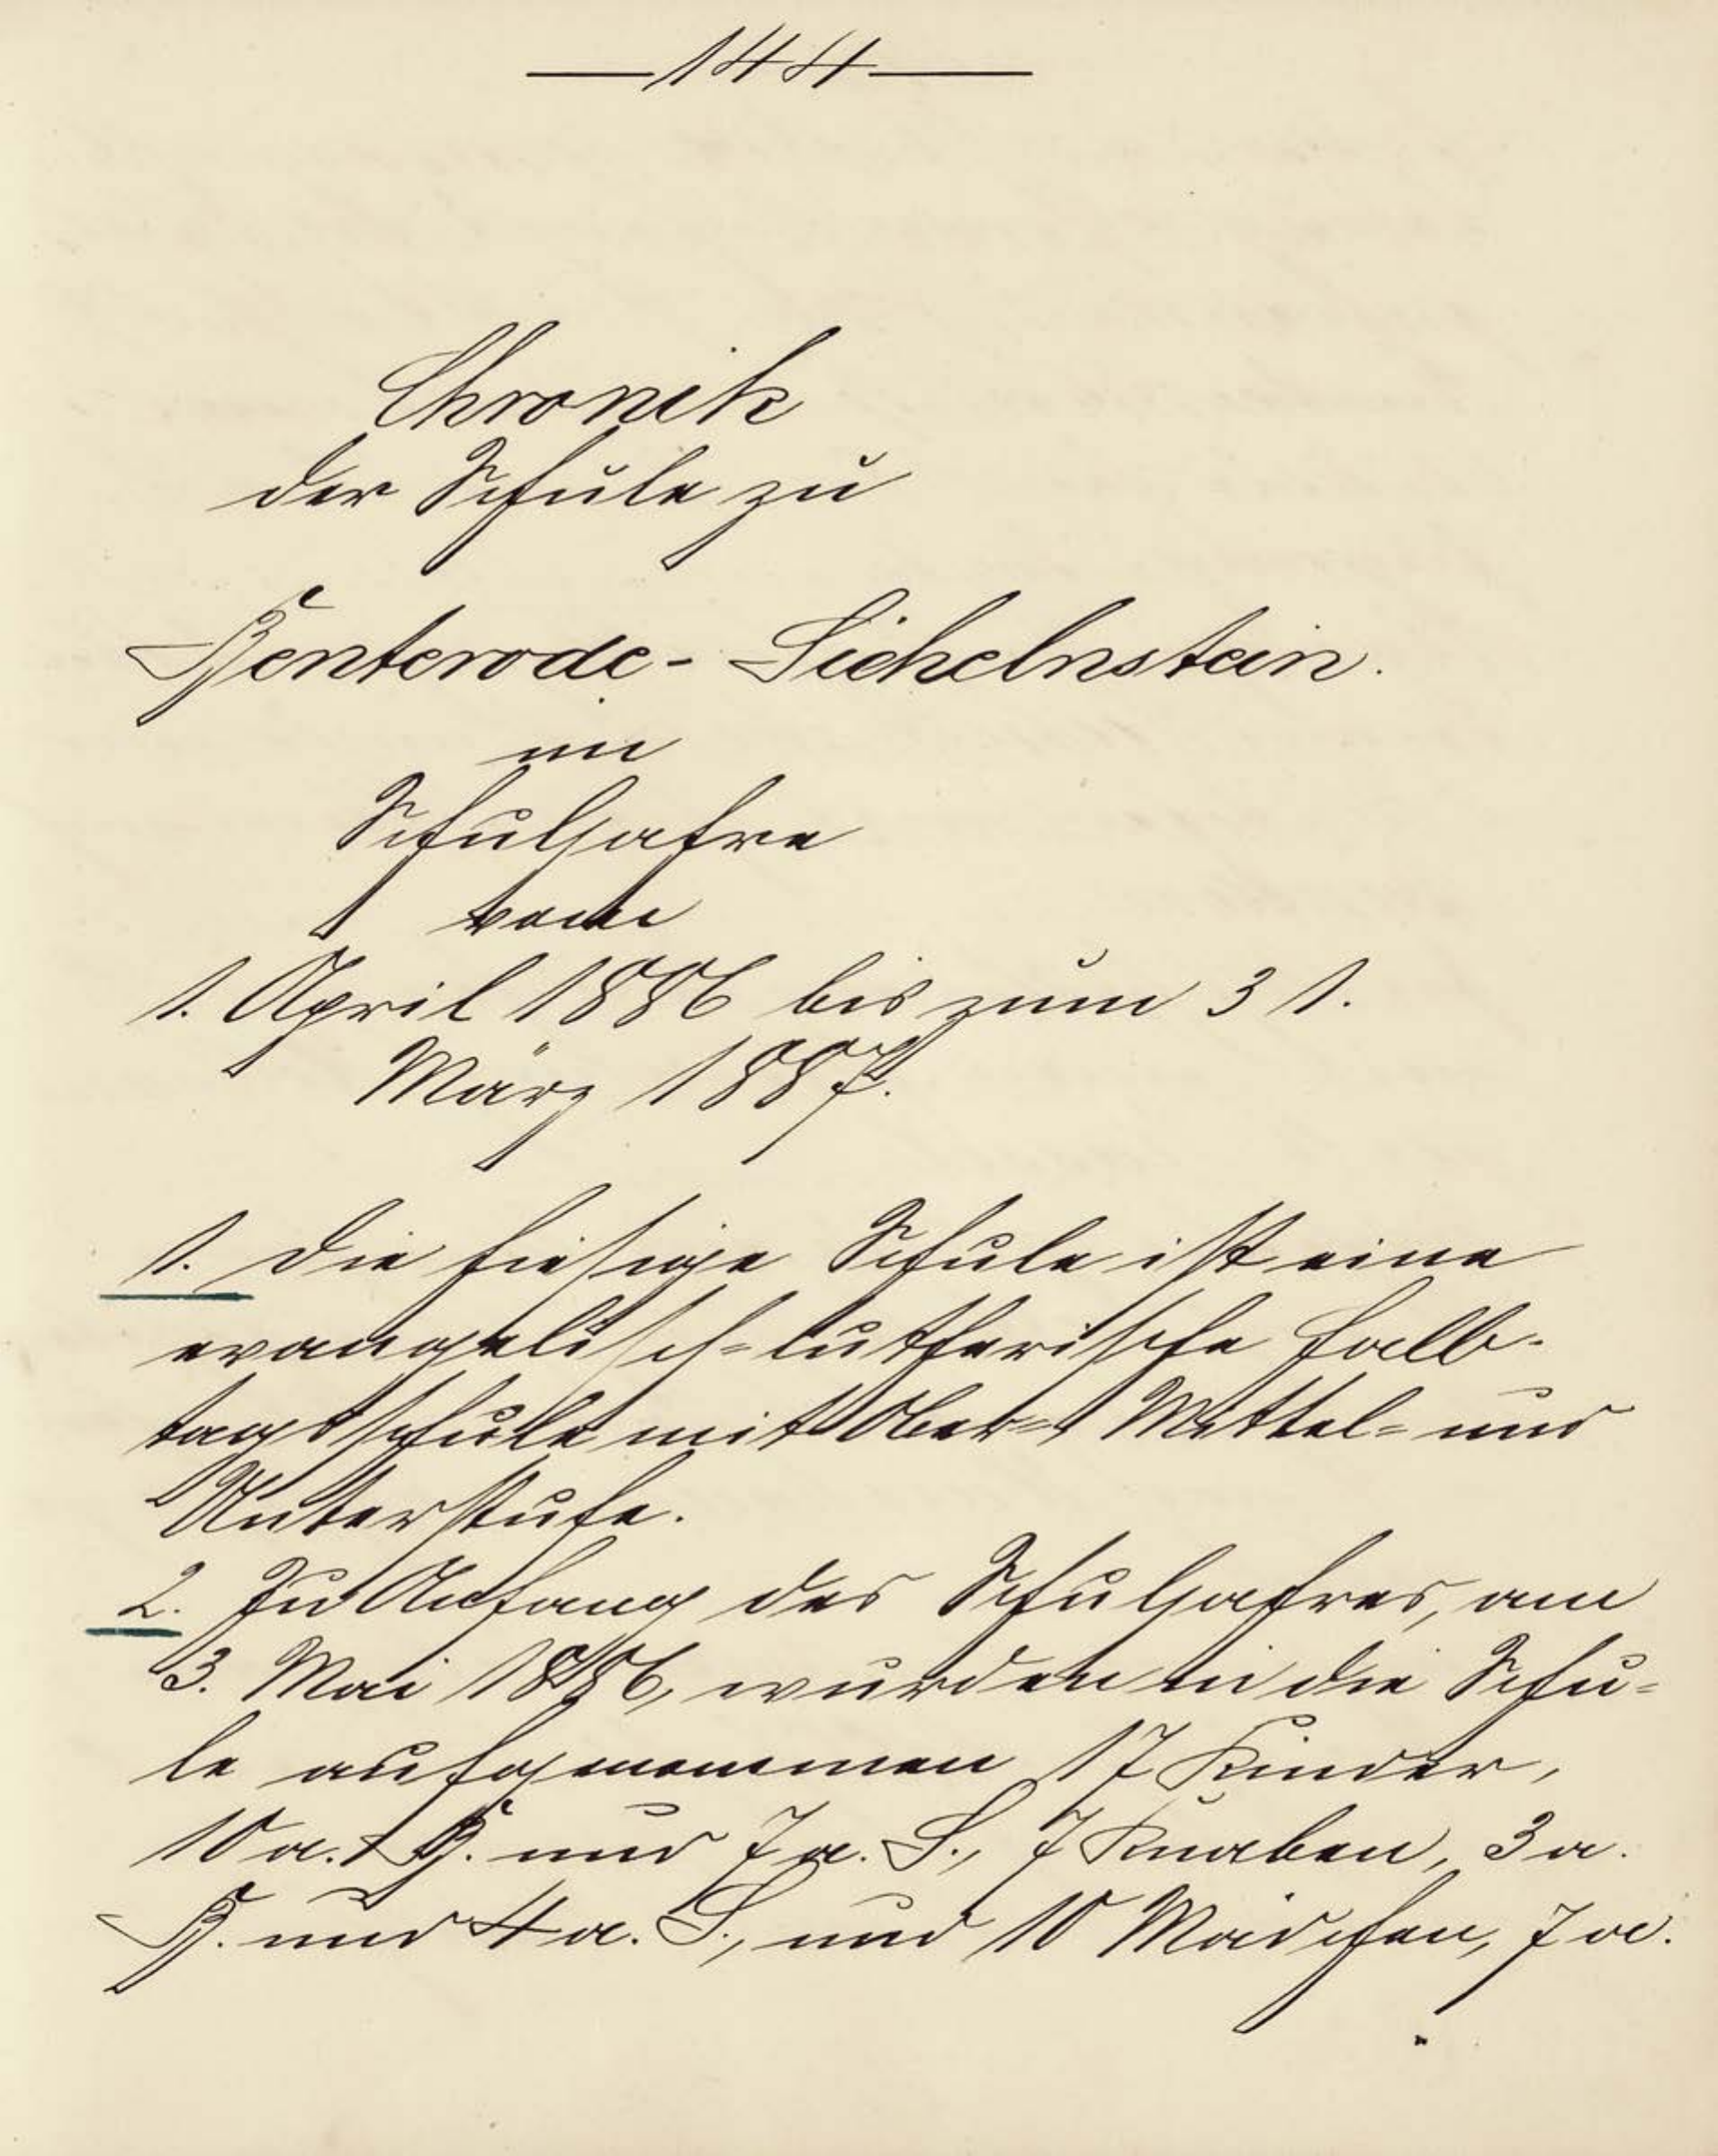 — 144 —
Chronik
der Schule zu
Benterode - Sichelnstein.
im
Schuljahre
vom
1. April 1886 bis zum 31.
März 1887.
1. Die hiesige Schule ist eine
evangelisch=lutherische Halb-
tagsschule mit Ober=, Mittel= und
Unterstufe.
2. Zu Anfang des Schuljahres, am
3. Mai 1886, wurden in die Schu=
le aufgenommen 17 Kinder,
10 a. B. und 7 a. S., 7 Knaben, 3 a.
B. und 4 a. S., und 10 Mädchen, 7 a.